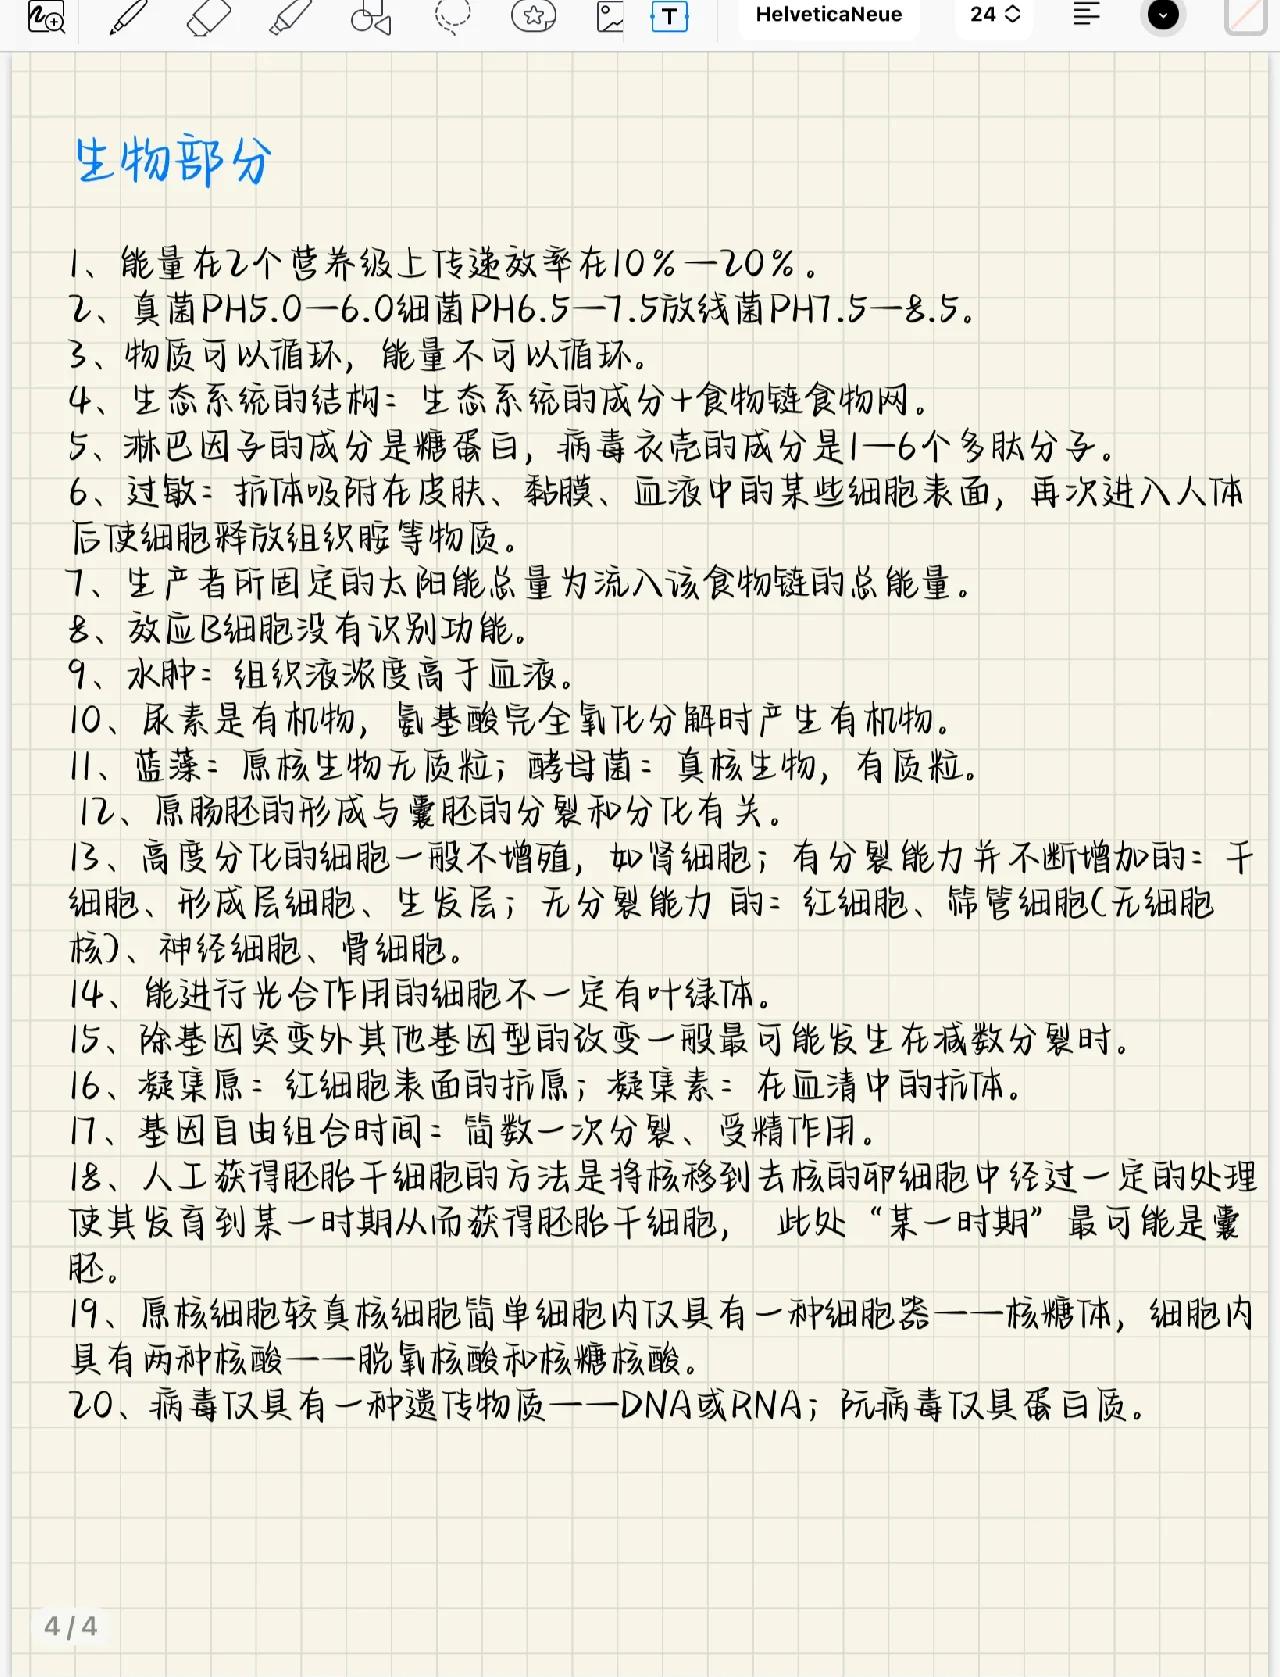 HelveticaNeue 24
生物部分
1、能量在2个营养级上传递效率在10%—20%。
2、真菌PH5.0—6.0细菌PH6.5—7.5放线菌PH7.5—8.5。
3、物质可以循环，能量不可以循环。
4、生态系统的结构：生态系统的成分+食物链食物网。
5、淋巴因子的成分是糖蛋白，病毒衣壳的成分是1—6个多肽分子。
6、过敏：抗体吸附在皮肤、黏膜、血液中的某些细胞表面，再次进入人体
后使细胞释放组织胺等物质。
7、生产者所固定的太阳能总量为流入该食物链的总能量。
8、效应B细胞没有识别功能。
9、水肿：组织液浓度高于血液。
10、尿素是有机物，氨基酸完全氧化分解时产生有机物。
11、蓝藻：原核生物无质粒；酵母菌：真核生物，有质粒。
12、原肠胚的形成与囊胚的分裂和分化有关。
13、高度分化的细胞一般不增殖，如肾细胞；有分裂能力并不断增加的：干
细胞、形成层细胞、生发层；无分裂能力 的：红细胞、筛管细胞(无细胞
核)、神经细胞、骨细胞。
14、能进行光合作用的细胞不一定有叶绿体。
15、除基因突变外其他基因型的改变一般最可能发生在减数分裂时。
16、凝集原：红细胞表面的抗原；凝集素：在血清中的抗体。
17、基因自由组合时间：简数一次分裂、受精作用。
18、人工获得胚胎干细胞的方法是将核移到去核的卵细胞中经过一定的处理
使其发育到某一时期从而获得胚胎干细胞， 此处“某一时期”最可能是囊
胚。
19、原核细胞较真核细胞简单细胞内仅具有一种细胞器——核糖体，细胞内
具有两种核酸——脱氧核酸和核糖核酸。
20、病毒仅具有一种遗传物质——DNA或RNA；阮病毒仅具蛋白质。
4/4